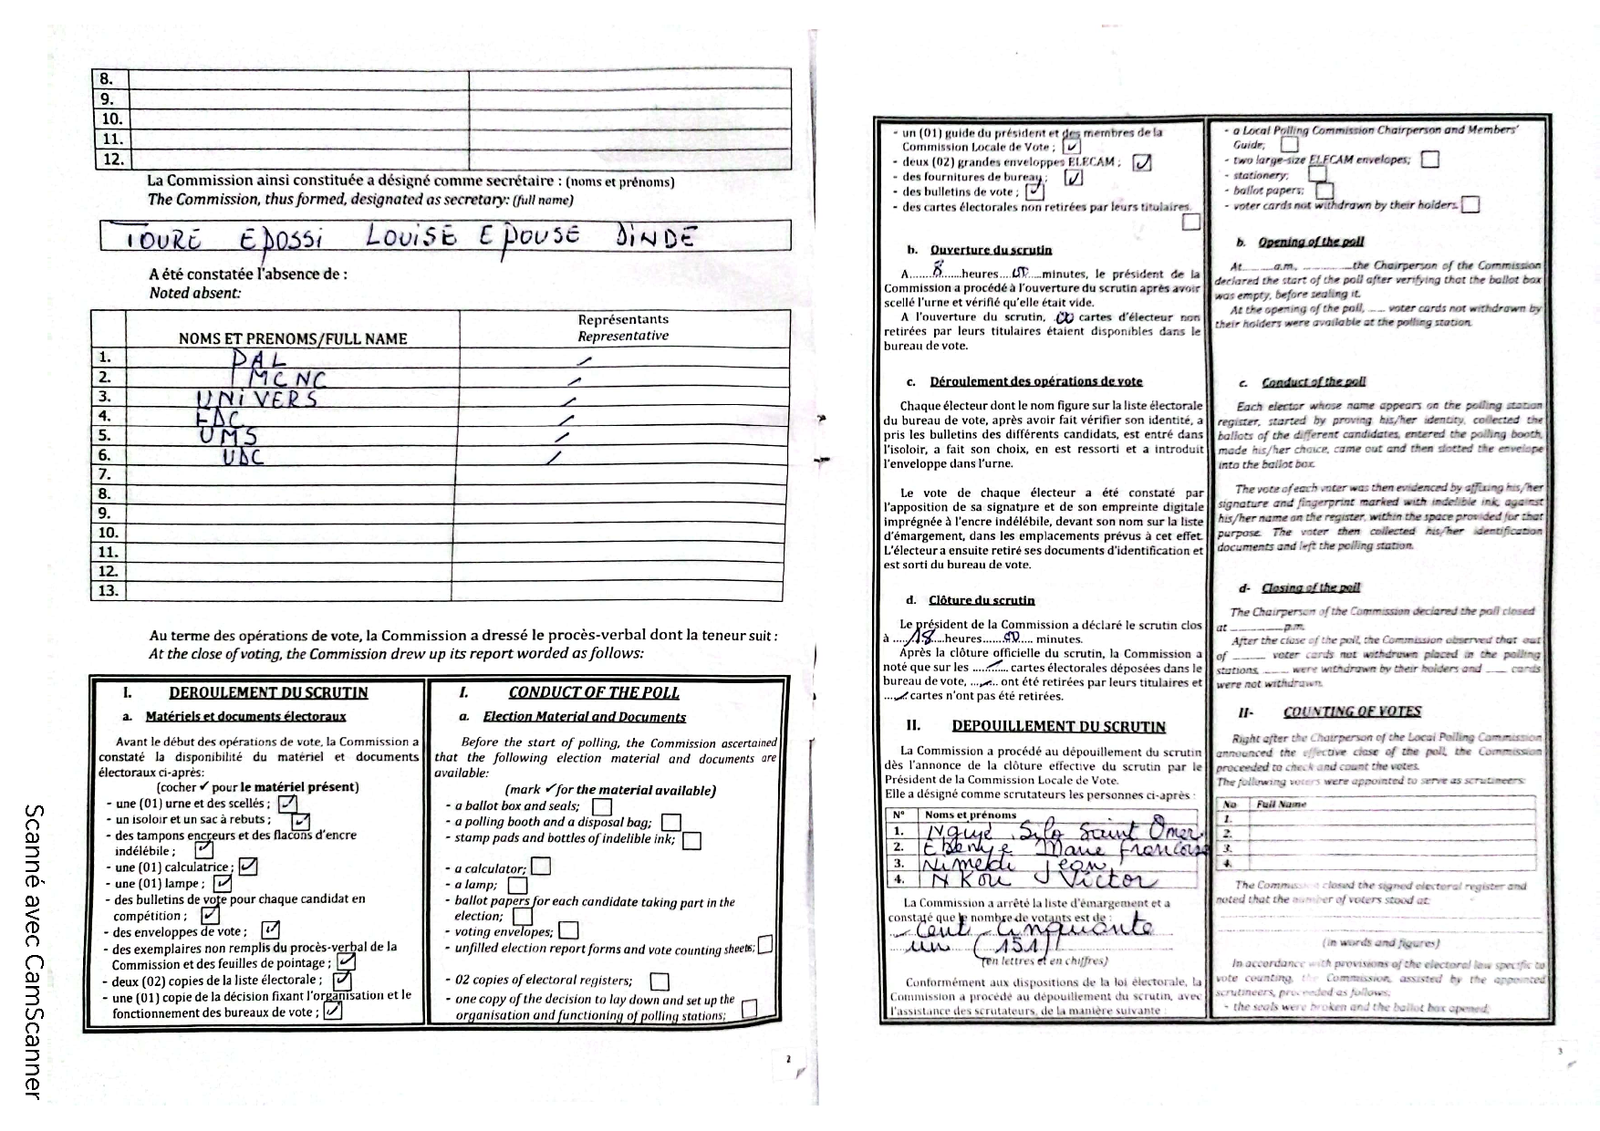 8.
9.
10.
11.
12.
La Commission ainsi constituée a désigné comme secrétaire : (noms et prénoms)
The Commission, thus formed, designated as secretary: (full name)
TOURE EPOSSI LOUISE EPOUSE DINDE
A été constatée l'absence de :
Noted absent:
NOMS ET PRENOMS/FULL NAME
Représentants
Representative
1. PAL
2. MCNC
3. UNIVERS
4. FDC
5. UMS
6. UDC
7.
8.
9.
10.
11.
12.
13.
Au terme des opérations de vote, la Commission a dressé le procès-verbal dont la teneur suit :
At the close of voting, the Commission drew up its report worded as follows:
I. DEROULEMENT DU SCRUTIN
a. Matériels et documents électoraux
Avant le début des opérations de vote, la Commission a
constaté la disponibilité du matériel et documents
électoraux ci-après:
(cocher ✓ pour le matériel présent)
- une (01) urne et des scellés ; ✓
- un isoloir et un sac à rebuts ; ✓
- des tampons encreurs et des flacons d'encre
indélébile ; ✓
- une (01) calculatrice ; ✓
- une (01) lampe ; ✓
- des bulletins de vote pour chaque candidat en
compétition ; ✓
- des enveloppes de vote ; ✓
- des exemplaires non remplis du procès-verbal de la
Commission et des feuilles de pointage ; ✓
- deux (02) copies de la liste électorale ; ✓
- une (01) copie de la décision fixant l'organisation et le
fonctionnement des bureaux de vote ; ✓
I. CONDUCT OF THE POLL
a. Election Material and Documents
Before the start of polling, the Commission ascertained
that the following election material and documents are
available:
(mark ✓ for the material available)
- a ballot box and seals;
- a polling booth and a disposal bag;
- stamp pads and bottles of indelible ink;
- a calculator;
- a lamp;
- ballot papers for each candidate taking part in the
election;
- voting envelopes;
- unfilled election report forms and vote counting sheets;
- 02 copies of electoral registers;
- one copy of the decision to lay down and set up the
organisation and functioning of polling stations;
2
- un (01) guide du président et des membres de la
Commission Locale de Vote ; ✓
- deux (02) grandes enveloppes ELECAM ; ✓
- des fournitures de bureau ; ✓
- des bulletins de vote ; ✓
- des cartes électorales non retirées par leurs titulaires.
b. Ouverture du scrutin
A........8......heures....00....minutes, le président de la
Commission a procédé à l'ouverture du scrutin après avoir
scellé l'urne et vérifié qu'elle était vide.
A l'ouverture du scrutin, 00 cartes d'électeur non
retirées par leurs titulaires étaient disponibles dans le
bureau de vote.
c. Déroulement des opérations de vote
Chaque électeur dont le nom figure sur la liste électorale
du bureau de vote, après avoir fait vérifier son identité, a
pris les bulletins des différents candidats, est entré dans
l'isoloir, a fait son choix, en est ressorti et a introduit
l'enveloppe dans l'urne.
Le vote de chaque électeur a été constaté par
l'apposition de sa signature et de son empreinte digitale
imprégnée à l'encre indélébile, devant son nom sur la liste
d'émargement, dans les emplacements prévus à cet effet.
L'électeur a ensuite retiré ses documents d'identification et
est sorti du bureau de vote.
d. Clôture du scrutin
Le président de la Commission a déclaré le scrutin clos
à .....18....heures......00.... minutes.
Après la clôture officielle du scrutin, la Commission a
noté que sur les ......... cartes électorales déposées dans le
bureau de vote, ....... ont été retirées par leurs titulaires et
...... cartes n'ont pas été retirées.
II. DEPOUILLEMENT DU SCRUTIN
La Commission a procédé au dépouillement du scrutin
dès l'annonce de la clôture effective du scrutin par le
Président de la Commission Locale de Vote.
Elle a désigné comme scrutateurs les personnes ci-après :
N° Noms et prénoms
1. Saint Omer
2. Marie francoise
3. Jean
4. N Kou Victor
La Commission a arrêté la liste d'émargement et a
constaté que le nombre de votants est de :
Cent Cinquante
un (151)
(en lettres et en chiffres)
Conformément aux dispositions de la loi électorale, la
Commission a procédé au dépouillement du scrutin, avec
l'assistance des scrutateurs, de la manière suivante :
- a Local Polling Commission Chairperson and Members'
Guide;
- two large-size ELECAM envelopes;
- stationery;
- ballot papers;
- voter cards not withdrawn by their holders.
b. Opening of the poll
At ........a.m, ..........the Chairperson of the Commission
declared the start of the poll after verifying that the ballot box
was empty, before sealing it.
At the opening of the poll, ..... voter cards not withdrawn by
their holders were available at the polling station.
c. Conduct of the poll
Each elector whose name appears on the polling station
register, started by proving his/her identity, collected the
ballots of the different candidates, entered the polling booth,
made his/her choice, came out and then slotted the envelope
into the ballot box.
The vote of each voter was then evidenced by affixing his/her
signature and fingerprint marked with indelible ink, against
his/her name on the register, within the space provided for that
purpose. The voter then collected his/her identification
documents and left the polling station.
d- Closing of the poll
The Chairperson of the Commission declared the poll closed
at ............p.m.
After the close of the poll, the Commission observed that out
of ....... voter cards not withdrawn placed in the polling
stations, ..... were withdrawn by their holders and ..... cards
were not withdrawn.
II- COUNTING OF VOTES
Right after the Chairperson of the Local Polling Commission
announced the effective close of the poll, the Commission
proceeded to check and count the votes.
The following voters were appointed to serve as scrutineers:
No Full Name
1.
2.
3.
4.
The Commission closed the signed electoral register and
noted that the number of voters stood at:
(in words and figures)
In accordance with provisions of the electoral law specific to
vote counting, the Commission, assisted by the appointed
scrutineers, proceeded as follows:
- the seals were broken and the ballot box opened;
3
Scanné avec CamScanner